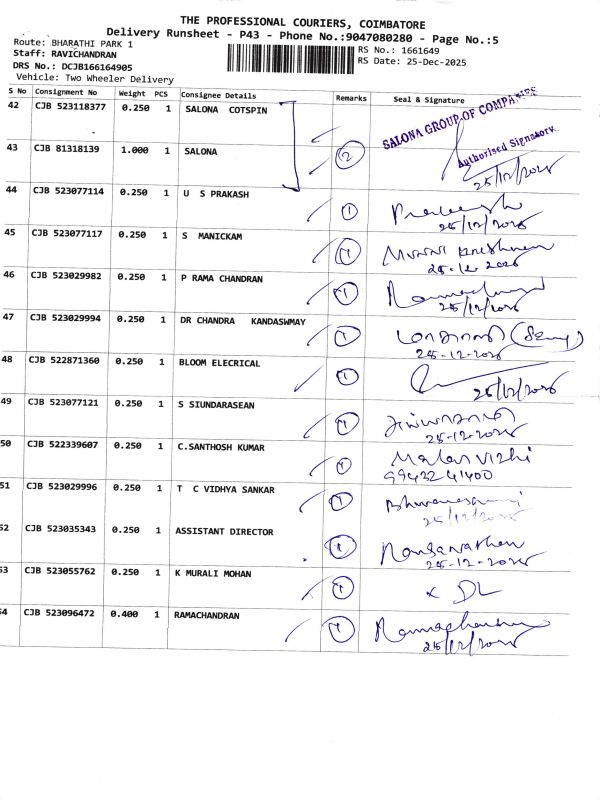 THE PROFESSIONAL COURIERS, COIMBATORE
Delivery Runsheet - P43 - Phone No.:9047080280 - Page No.:5
Route: BHARATHI PARK 1
RS No.: 1661649
Staff: RAVICHANDRAN
RS Date: 25-Dec-2025
DRS No.: DCJB166164905
Vehicle: Two Wheeler Delivery
S No Consignment No Weight PCS Consignee Details Remarks Seal & Signature
42 CJB 523118377 0.250 1 SALONA COTSPIN
SALONA GROUP OF COMPANIES
Authorised Signatory
43 CJB 81318139 1.000 1 SALONA 2
25/12/2025
44 CJB 523077114 0.250 1 U S PRAKASH 1
25/12/2025
45 CJB 523077117 0.250 1 S MANICKAM 1
25-12-2025
46 CJB 523029982 0.250 1 P RAMA CHANDRAN 1
25/12/2025
47 CJB 523029994 0.250 1 DR CHANDRA KANDASWMAY 1
25-12-2025
48 CJB 522871360 0.250 1 BLOOM ELECRICAL 1
25/12/2025
49 CJB 523077121 0.250 1 S SIUNDARASEAN 1
25-12-2025
50 CJB 522339607 0.250 1 C.SANTHOSH KUMAR 1 Malar Vizhi
99422 41400
51 CJB 523029996 0.250 1 T C VIDHYA SANKAR 1
25/12/2025
52 CJB 523035343 0.250 1 ASSISTANT DIRECTOR 1
25-12-2025
53 CJB 523055762 0.250 1 K MURALI MOHAN 1 x DL
54 CJB 523096472 0.400 1 RAMACHANDRAN 1 Ramachandran
25/12/2025